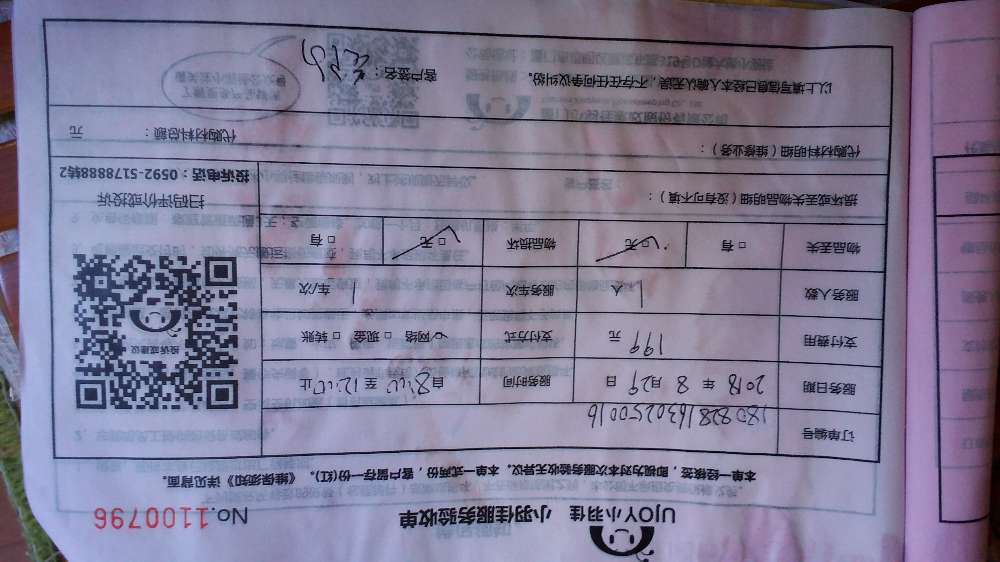 UJOY小羽佳 小羽佳服务验收单 No.1100796
本单一经接签，即视为对本次服务验收无异议。本单一式两份，客户留存一份(红)。《维保须知》详见背面。
订单编号 180828163025001 6
服务日期 2018 年 8 月 29 日 服务时间 自 8:00 至 12:00 止
支付费用 199 元 支付方式 网络 □ 现金 □ 转账
服务人数 1 人 服务车次 1 车/次
物品丢失 □ 有 □ 无 物品损坏 □ 无 □ 有
投诉或建议
扫码评价或投诉
损坏或丢失物品明细（没有可不填）：
投诉电话：0592-5178888转2
代购材料明细（维修业务）： 代购材料总额： 元
以上填写信息已经本人确认无误，不存在任何争议纠纷。 客户签名：